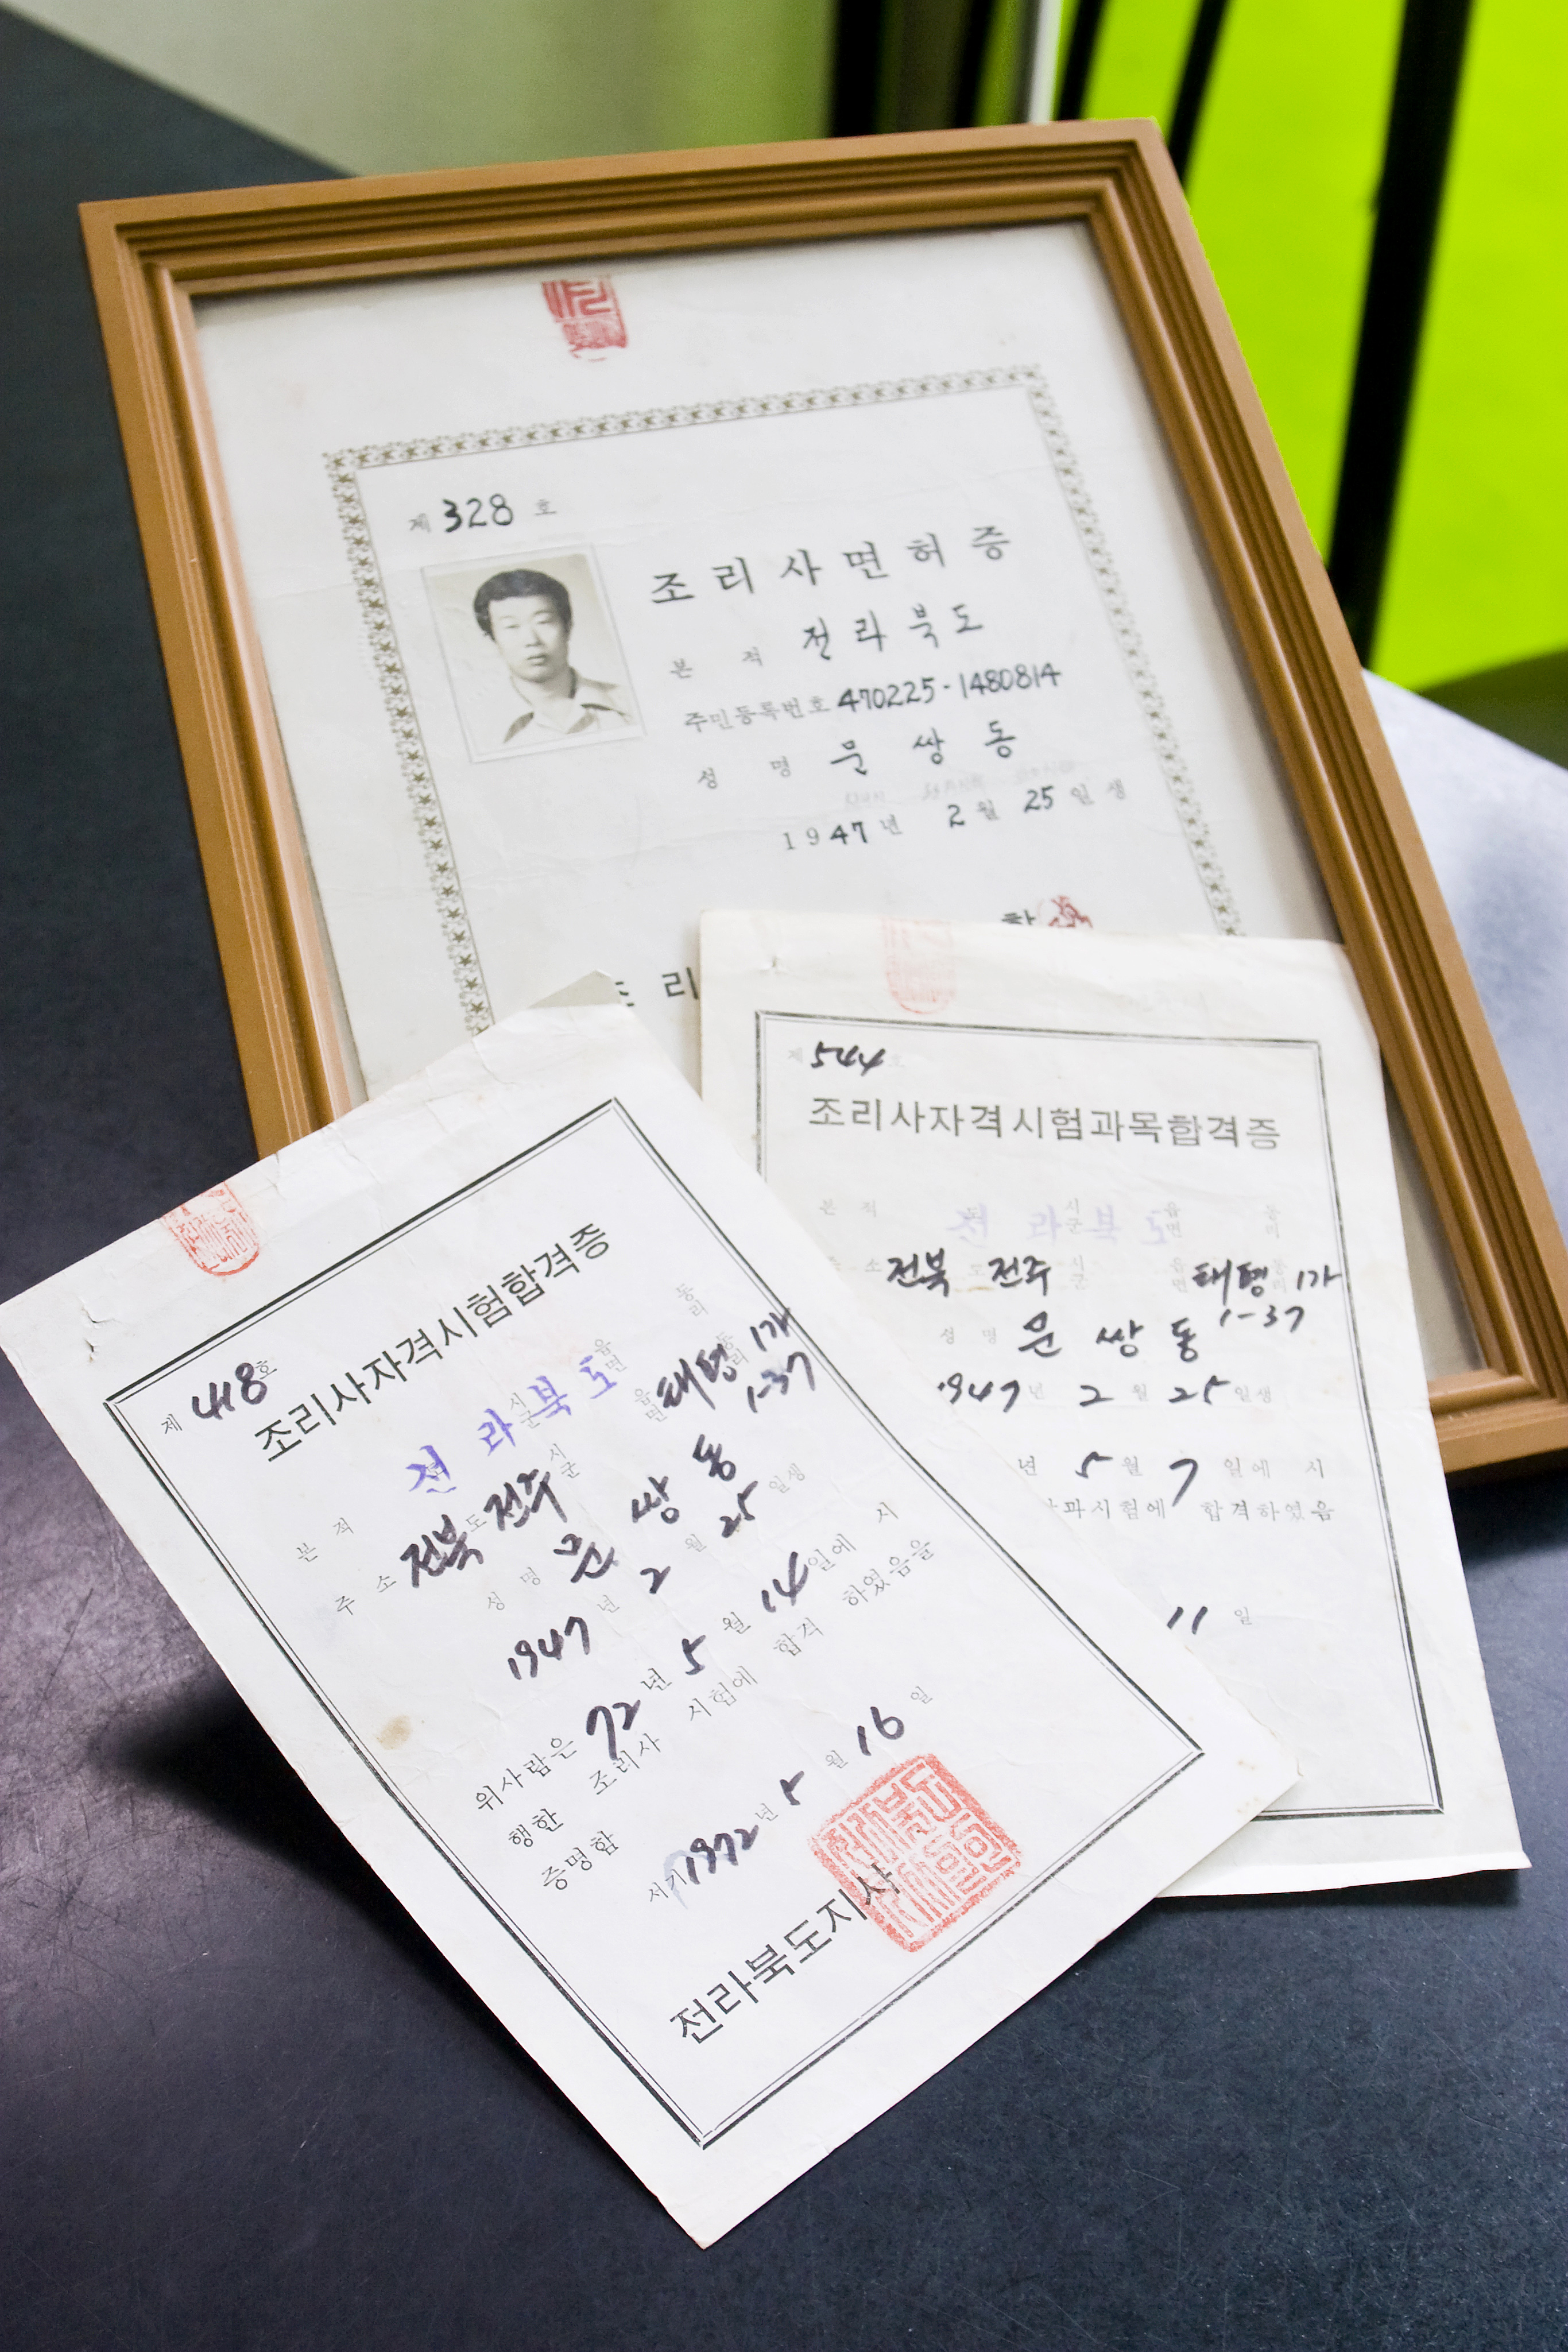 제 328 호
조리사면허증
본 적 전라북도
주민등록번호 470225-1480814
성 명 문쌍동
1947년 2월 25일생
조 리
제 544 호
조리사자격시험과목합격증
본 적 전라북도 시 군 읍 면 동 리
주 소 전북 도 전주 시 군 읍 면 태평 1가 동 리
1-37
성 명 문쌍동
1947년 2월 25일생
년 5월 7일에 시
과시험에 합격하였음
11일
제 418호
조리사자격시험합격증
본 적 전라북도 시 군 읍 면 동 리
주 소 전북 도 전주 시 군 읍 면 태평 1가 동 리
1-37
성 명 문쌍동
1947년 2월 25일생
위사람은 72년 5월 14일에 시
행한 조리사 시험에 합격 하였음을
증명함
서기 1972년 5월 16일
전라북도지사